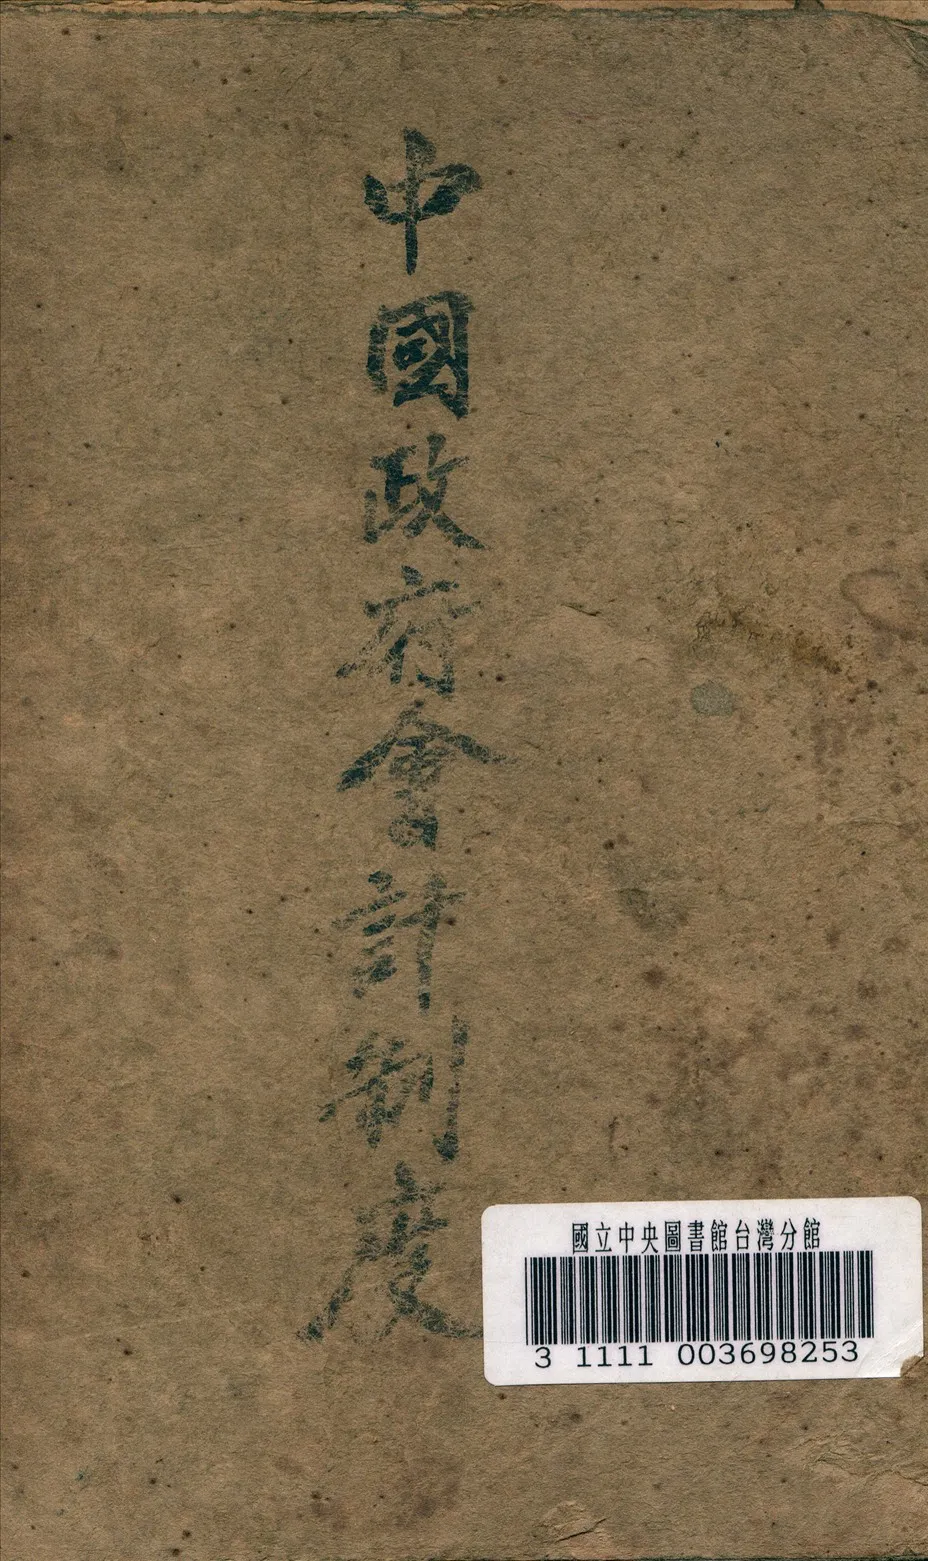 中國政府會計制度
國立中央圖書館台灣分館
3 1111 003698253